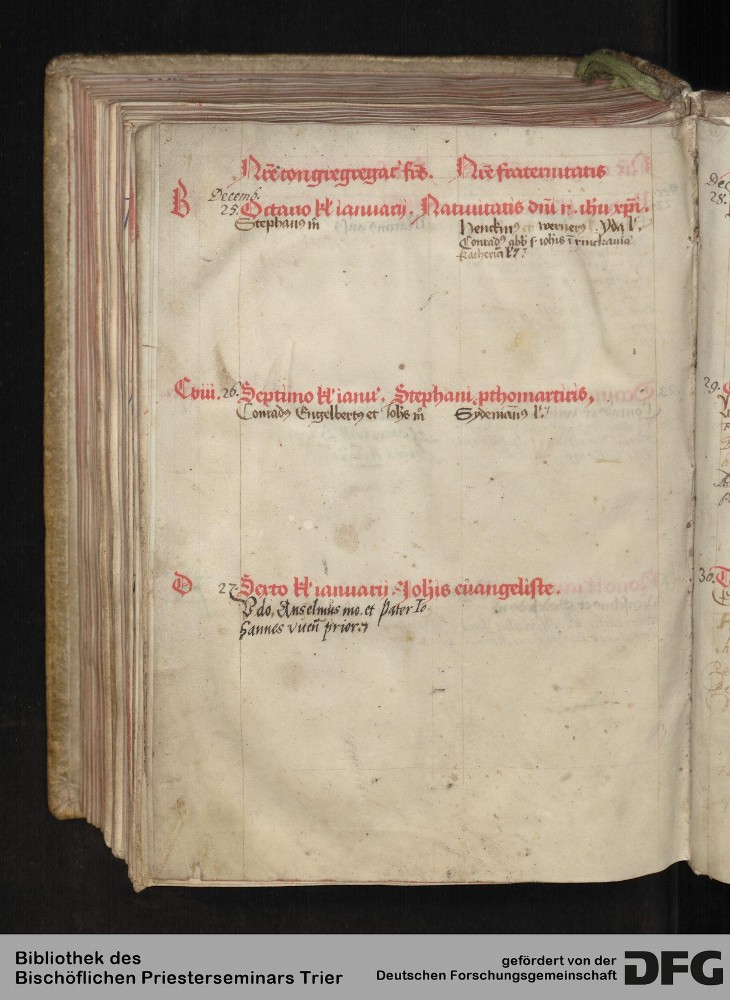 Nr̄e congregegac̄ frīs. Nr̄e fraternitatis
Decemb.
B 25. Octavo kl' ianuarij. Nativitatis dn̄i n. ihū xp̄i.
Stephanus m̄
Henckinus et wernerus . Yda l'.
Conradus abb s. iohis i rinckavia
katherīa l'
C viii. 26. Septimo kl' ianu'. Stephani pthomartiris,
Conradus Engelbertus et Joh̄s m̄ Sydemān̄us l'
D 27. Sexto kl' ianuarij. Joh̄is evangeliste.
Udo, Anselmus mo. et Pater Io
hannes prior
Dec
28.
29.
30.
Bibliothek des
Bischöflichen Priesterseminars Trier
gefördert von der
Deutschen Forschungsgemeinschaft
DFG